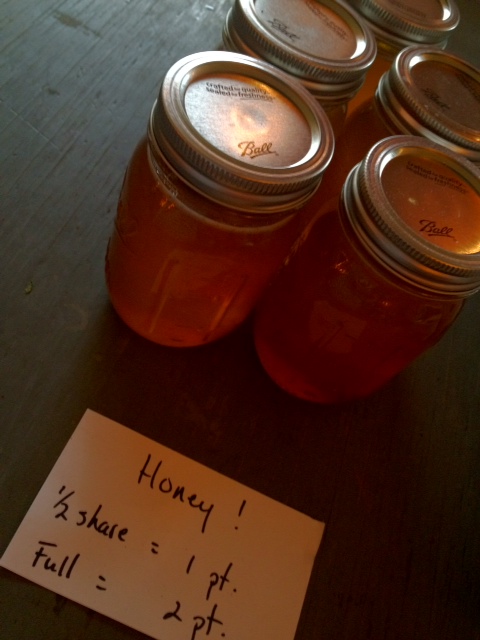 crafted for quality
sealed for freshness
Ball
Ball
Honey !
½ share = 1 pt.
Full = 2 pt.